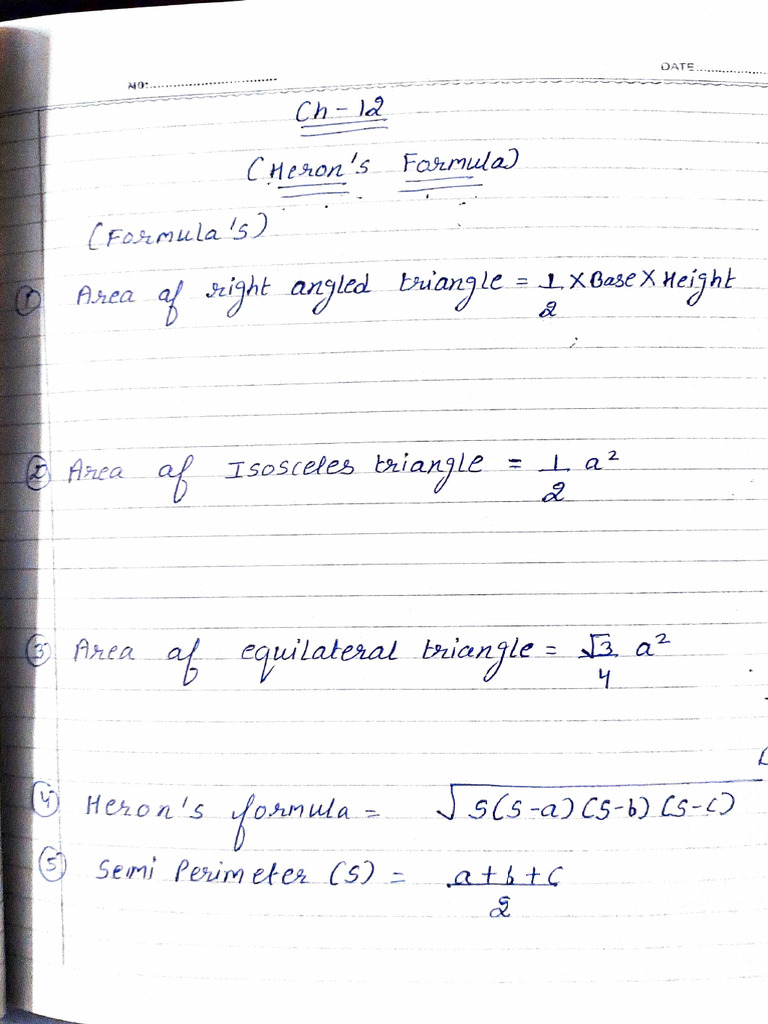 NO:
DATE
Ch - 12
(Heron's Formula)
(Formula's)
① Area of right angled triangle = 1/2 × Base × Height
② Area of Isosceles triangle = 1/2 a²
③ Area of equilateral triangle = √3/4 a²
④ Heron's formula = √s(s-a)(s-b)(s-c)
⑤ Semi Perimeter (s) = a+b+c/2